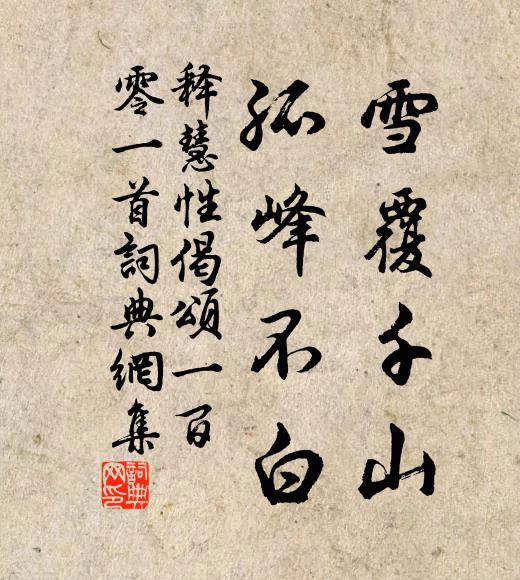 雪覆千山
孤峰不白
释慧性偈頌一百
零一首詞典網集
詞典
网印